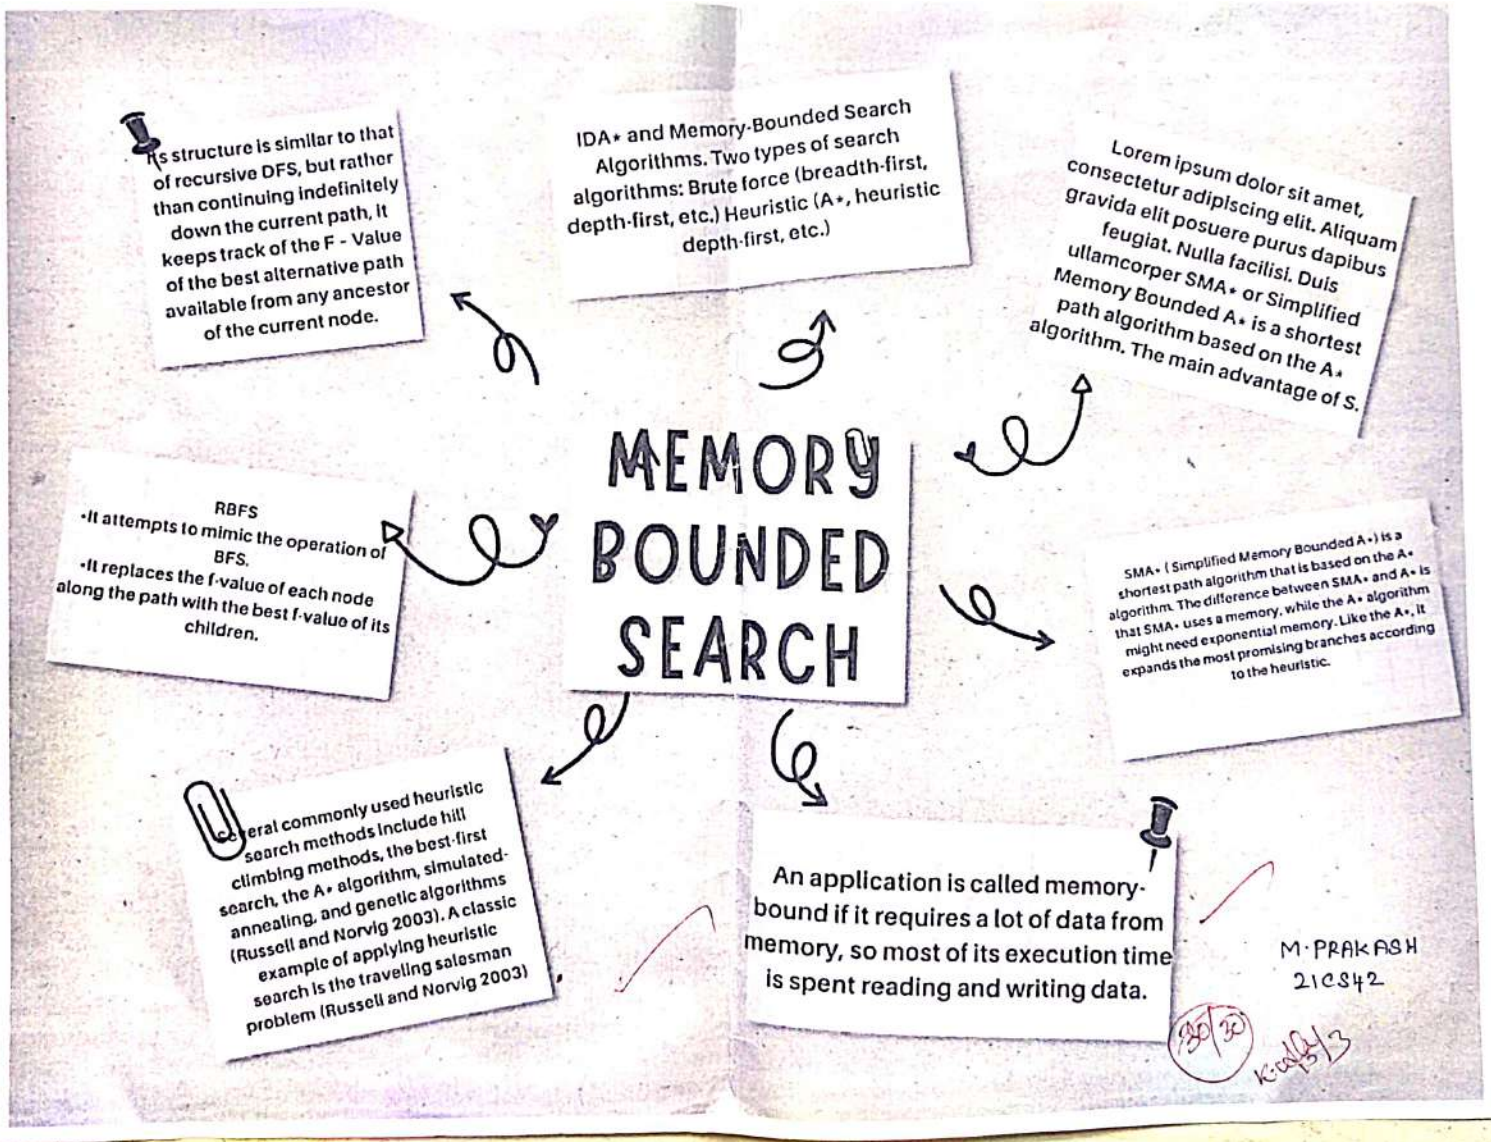 Its structure is similar to that
of recursive DFS, but rather
than continuing indefinitely
down the current path, it
keeps track of the F - Value
of the best alternative path
available from any ancestor
of the current node.
IDA* and Memory-Bounded Search
Algorithms. Two types of search
algorithms: Brute force (breadth-first,
depth-first, etc.) Heuristic (A*, heuristic
depth-first, etc.)
Lorem ipsum dolor sit amet,
consectetur adipiscing elit. Aliquam
gravida elit posuere purus dapibus
feugiat. Nulla facilisi. Duis
ullamcorper SMA* or Simplified
Memory Bounded A* is a shortest
path algorithm based on the A*
algorithm. The main advantage of S.
MEMORY
BOUNDED
SEARCH
RBFS
•It attempts to mimic the operation of
BFS.
•It replaces the f-value of each node
along the path with the best f-value of its
children.
SMA* ( Simplified Memory Bounded A*) is a
shortest path algorithm that is based on the A*
algorithm. The difference between SMA* and A* is
that SMA* uses a memory, while the A* algorithm
might need exponential memory. Like the A*, it
expands the most promising branches according
to the heuristic.
Several commonly used heuristic
search methods include hill
climbing methods, the best-first
search, the A* algorithm, simulated-
annealing, and genetic algorithms
(Russell and Norvig 2003). A classic
example of applying heuristic
search is the traveling salesman
problem (Russell and Norvig 2003)
An application is called memory-
bound if it requires a lot of data from
memory, so most of its execution time
is spent reading and writing data.
M. PRAKASH
21CS42
30/30